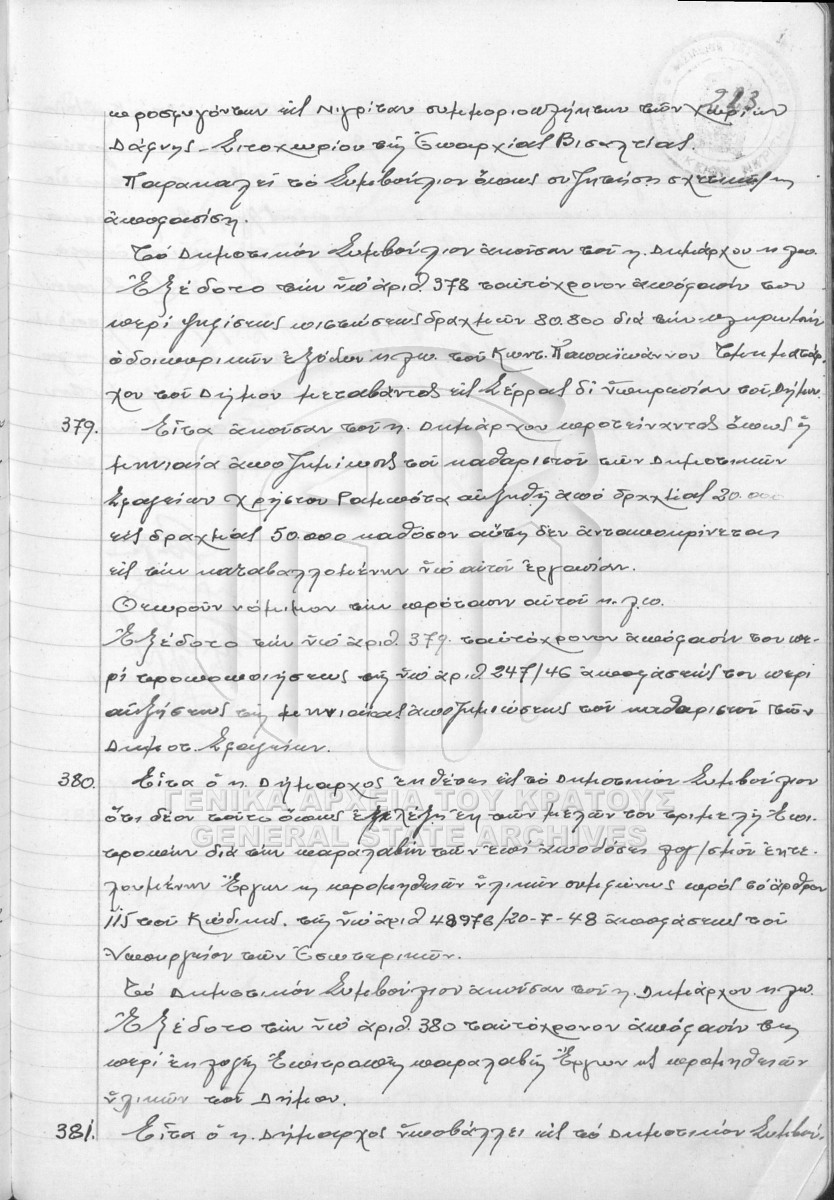 223
προσφυγόντων εἰς Νιγρίταν συμμοριοπλήκτων τῶν χωρίων
Δάφνης - Σιτοχωρίου τῆς Ἐπαρχίας Βισαλτίας.
Παρακαλεῖ τὸ Συμβούλιον ὅπως συζητήσῃ σχετικῶς κ
ἀποφασίσῃ.
Τὸ Δημοτικὸν Συμβούλιον ἀκοῦσαν τοῦ κ. Δημάρχου κ.λ.π.
Ἐξέδοτο τὴν ὑπ' ἀριθ. 378 ταὐτόχρονον ἀπόφασίν του
περὶ ψηφίσεως πιστώσεως δραχμῶν 80.800 διὰ τὴν πληρωμὴν
ὁδοιπορικῶν ἐξόδων κ.λ.π. τοῦ Κωνστ. Παπαϊωάννου Τμηματάρ-
χου τοῦ Δήμου μεταβάντος εἰς Σέρρας δι' ὑπηρεσίαν τοῦ Δήμου.
379. Εἶτα ἀκοῦσαν τοῦ κ. Δημάρχου προτείναντος ὅπως ἡ
μηνιαία ἀποζημίωσις τοῦ καθαριστοῦ τῶν Δημοτικῶν
Σφαγείων Χρήστου Ραμπότα αὐξηθῇ ἀπὸ δραχμὰς 20.000
εἰς δραχμὰς 50.000 καθόσον αὕτη δὲν ἀνταποκρίνεται
εἰς τὴν καταβαλλομένην ὑπ' αὐτοῦ ἐργασίαν.
Θεωροῦν νόμιμον τὴν πρότασιν αὐτοῦ κ.λ.π.
Ἐξέδοτο τὴν ὑπ' ἀριθ. 379 ταὐτόχρονον ἀπόφασίν του πε-
ρὶ τροποποιήσεως τῆς ὑπ' ἀριθ 247/46 ἀποφάσεώς του περὶ
αὐξήσεως τῆς μηνιαίας ἀποζημιώσεως τοῦ καθαριστοῦ τῶν
Δημοτ. Σφαγείων.
380. Εἶτα ὁ κ. Δήμαρχος ἐκθέτει εἰς τὸ Δημοτικὸν Συμβούλιον
ὅτι δέον τοῦτο ὅπως ἐκλέξῃ ἐκ τῶν μελῶν του τριμελῆ Ἐπι-
τροπὴν διὰ τὴν παραλαβὴν τῶν ἐπὶ ἀποδόσει λογ/σμοῦ ἐκτε-
λουμένων Ἔργων κ προμηθειῶν ὑλικῶν συμφώνως πρὸς τὸ ἄρθρον
115 τοῦ Κώδικος. τῆς ὑπ' ἀριθ 48976/20-7-48 ἀποφάσεως τοῦ
Ὑπουργείου τῶν Ἐσωτερικῶν.
Τὸ Δημοτικὸν Συμβούλιον ἀκοῦσαν τοῦ κ. Δημάρχου κ.λ.π.
Ἐξέδοτο τὴν ὑπ' ἀριθ. 380 ταὐτόχρονον ἀπόφασίν της
περὶ ἐκλογῆς Ἐπιτροπῆς παραλαβῆς Ἔργων κ προμηθειῶν
ὑλικῶν τοῦ Δήμου.
381. Εἶτα ὁ κ. Δήμαρχος ὑποβάλλει εἰς τὸ Δημοτικὸν Συμβού-
ΓΕΝΙΚΑ ΑΡΧΕΙΑ ΤΟΥ ΚΡΑΤΟΥΣ
GENERAL STATE ARCHIVES